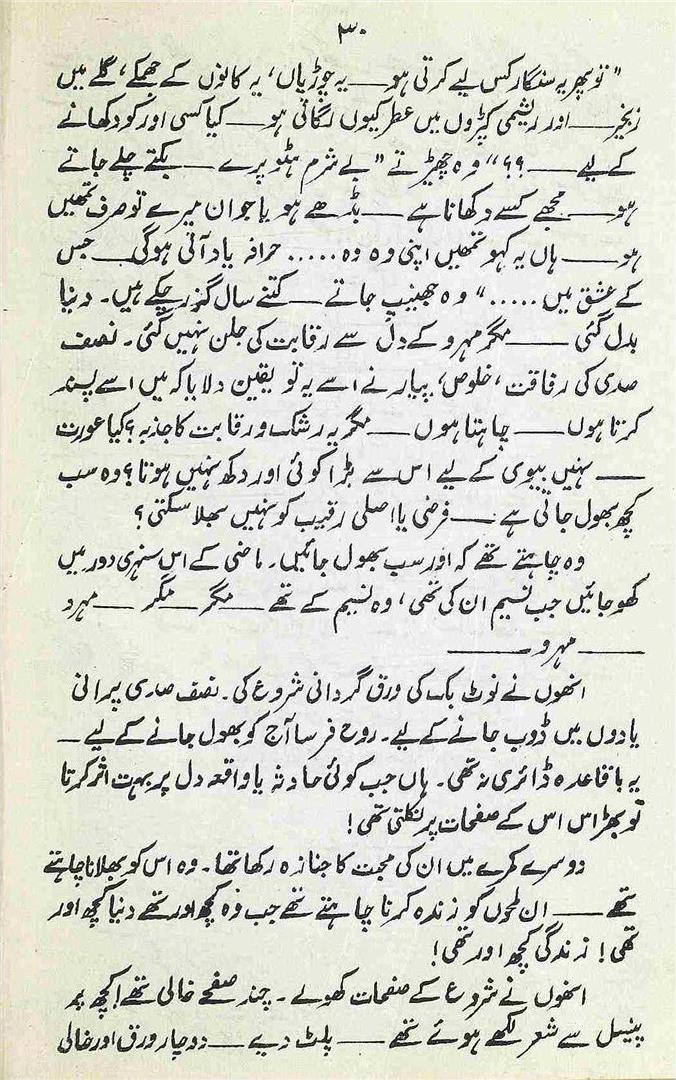 ۳۰
"تو پھر یہ سنگار کس لیے کرتی ہو —— یہ چوڑیاں، یہ کانوں کے جھمکے، گلے میں
زنجیر —— اور ریشمی کپڑوں میں عطر کیوں لگاتی ہو —— کیا کسی اور کو دکھانے
کے لیے —— ؟؟" وہ چھیڑتے "بے شرم ہٹو پرے —— بکتے چلے جاتے
ہو —— مجھے کسے دکھانا ہے —— بڈھے ہو یا جوان میرے تو صرف تمھیں
ہو —— ہاں یہ کہو تمھیں اپنی وہ وہ ..... حرافہ یاد آتی ہوگی —— جس
کے عشق میں ....." وہ جھینپ جاتے —— کتنے سال گزر چکے ہیں۔ دنیا
بدل گئی —— مگر مہرو کے دل سے رقابت کی جلن نہیں گئی۔ نصف
صدی کی رفاقت، خلوص، پیار نے اسے یہ تو یقین دلایا کہ میں اسے پسند
کرتا ہوں —— چاہتا ہوں —— مگر یہ رشک و رقابت کا جذبہ؟ کیا عورت
—— نہیں بیوی کے لیے اس سے بڑا کوئی اور دکھ نہیں ہوتا؟ وہ سب
کچھ بھول جاتی ہے —— فرضی یا اصلی رقیب کو نہیں بھلا سکتی؟
وہ چاہتے تھے کہ اور سب بھول جائیں۔ ماضی کے اس سنہری دور میں
کھو جائیں جب نسیم ان کی تھی، وہ نسیم کے تھے —— مگر —— مگر —— مہرو
—— مہرو ——
انھوں نے نوٹ بک کی ورق گردانی شروع کی۔ نصف صدی پرانی
یادوں میں ڈوب جانے کے لیے۔ روح فرسا آج کو بھول جانے کے لیے —
یہ باقاعدہ ڈائری نہ تھی۔ ہاں جب کوئی حادثہ یا واقعہ دل پر بہت اثر کرتا
تو بھڑاس اس کے صفحات پر نکلتی تھی!
دوسرے کمرے میں ان کی محبت کا جنازہ رکھا تھا۔ وہ اس کو بھلانا چاہتے
تھے —— ان لمحوں کو زندہ کرنا چاہتے تھے جب وہ کچھ اور تھے دنیا کچھ اور
تھی! زندگی کچھ اور تھی!
انھوں نے شروع کے صفحات کھولے۔ چند صفحے خالی تھے! کچھ پر
پینسل سے شعر لکھے ہوئے تھے —— پلٹ دیے —— دو چار ورق اور خالی